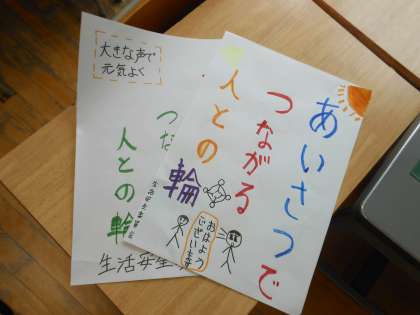 あいさつで
つながる
人との
輪
おはよう
ございます
大きな声で
元気よく
つな
人との輪
生活安全